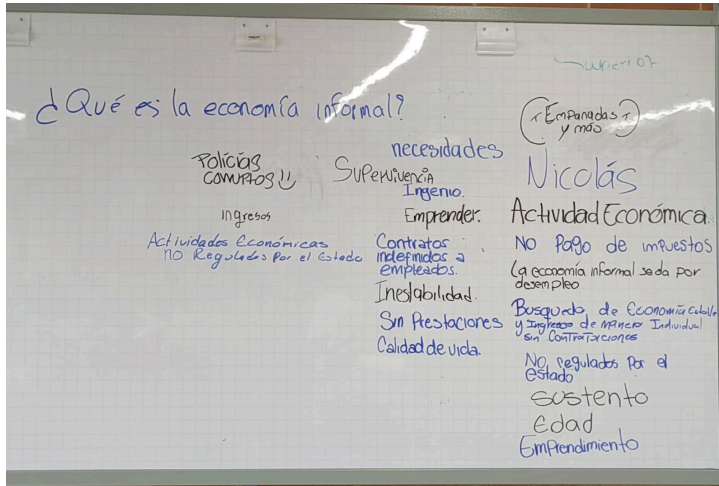 ¿Qué es la economía informal?
Policías
corruptos!!
Ingresos
Actividades Económicas
no Regulados Por el Estado
necesidades
Supervivencia
Ingenio.
Emprender.
Contratos
indefinidos a
empleados.
Inestabilidad.
Sin Prestaciones
Calidad de vida.
Empanadas
y más
Nicolás
Actividad Económica.
No Pago de impuestos
La economía informal se da por
desempleo
Busqueda de Economía
y Ingresos de manera Individual
sin
No regulados Por el
estado
sustento
Edad
Emprendimiento